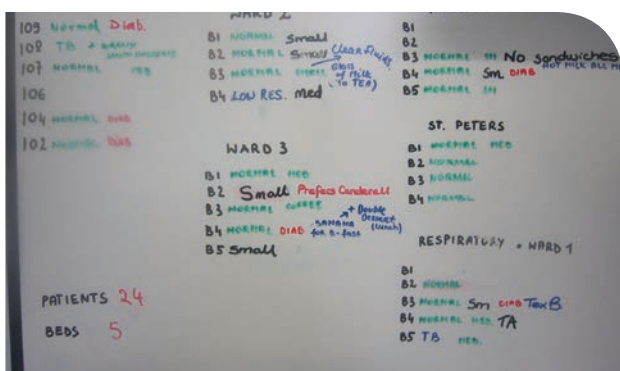 109 Normal Diab.
108 TB +
107 NORMAL MED
106
104 NORMAL DIAB
102 NORMAL DIAB
PATIENTS 24
BEDS 5
WARD 2
B1 NORMAL Small
B2 NORMAL Small Clear Fluids
B3 NORMAL
of Milk
to TEA)
B4 LOW RES. med
WARD 3
B1 NORMAL MED
B2 Small Prefers Canderall
B3 NORMAL + Double
B4 NORMAL DIAB BANANA Dessert
for B-fast (Lunch)
B5 Small
B1
B2
B3 NORMAL SM No sandwiches
HOT MILK ALL
B4 NORMAL Sm DIAB
B5 NORMAL SM
ST. PETERS
B1 NORMAL MED
B2 NORMAL
B3 NORMAL
B4 NORMAL
RESPIRATORY • WARD 1
B1
B2 NORMAL
B3 NORMAL Sm DIAB Tex B
B4 NORMAL MED. TA
B5 TB MED.